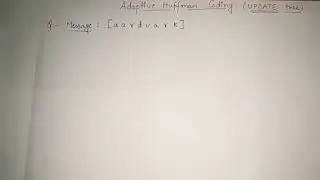 Adaptive Huffman Coding (UPDATE tree)
Q- Message : [a a r d v a r k]